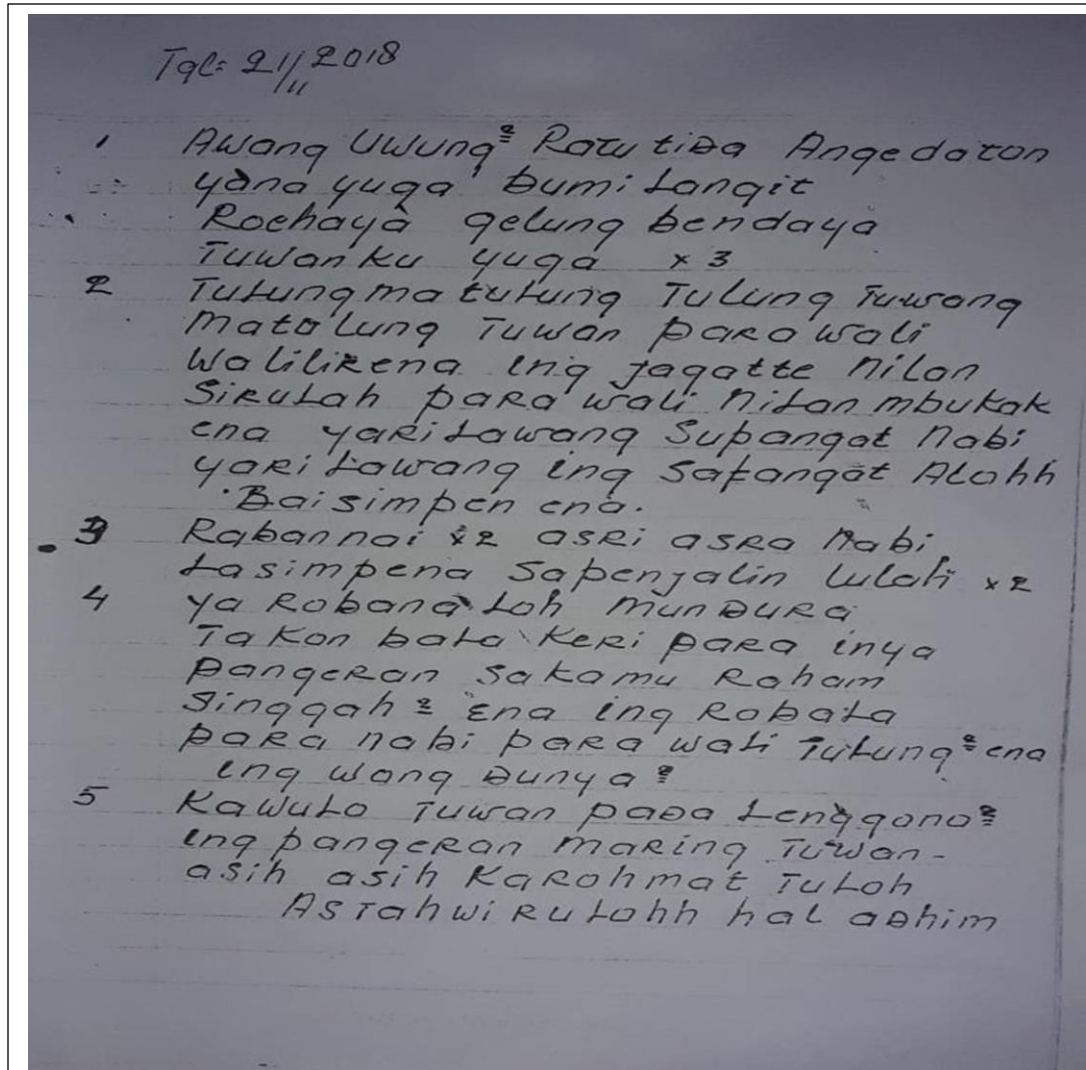 Tgl: 21/11 2018
1 Awang Uwung² Ratu tida Angedaton
yana yuga bumi Langit
Rochaya gelung bendaya
Tuwanku yuga x 3
2 Tulung matulung Tulung Tuwang
Matolung Tuwan para wali
Walilirena ing jagatte nilan
Sirulah para wali nilan mbukak
ena yari Lawang Supangat Nabi
yari Lawang ing Safangat Alohh
Baisimpen ena.
3 Rabannai x2 asri asra Nabi
Lasimpena Sapenjalin lulati x2
4 ya Robana Loh mundura
Takon bala keri para inya
pangeran Sakamu Raham
Singgah² Ena ing Robala
para nabi para wali Tulung² ena
ing wong Dunya²
5 Kawulo Tuwan pada Lenggono²
ing pangeran maring Tuwan-
asih asih Karohmat Tuloh
Astahwirulohh hal adhim